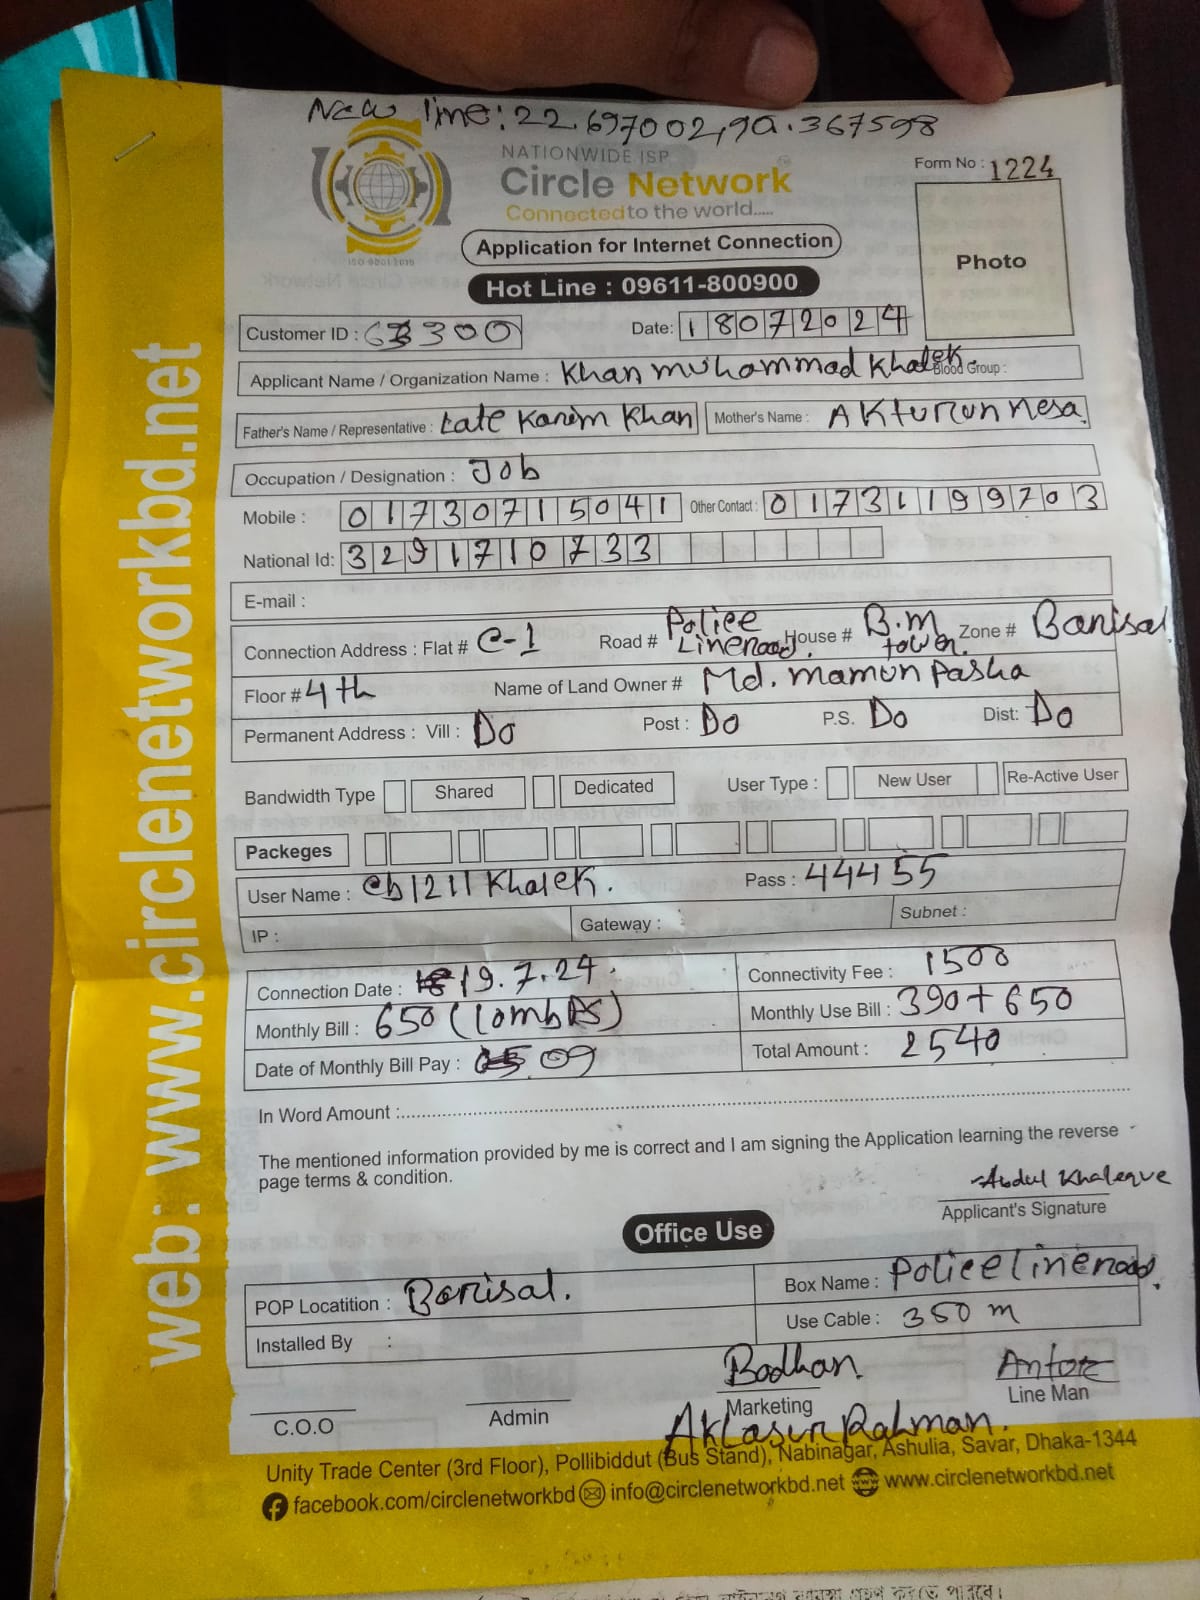 New line: 22.697002,90.367598
NATIONWIDE ISP
Circle Network
Connected to the world.....
ISO 9001:2015
Form No : 1224
Application for Internet Connection
Photo
Hot Line : 09611-800900
Customer ID : 63300 Date: 18072024
Applicant Name / Organization Name : Khan muhammad Khalek Blood Group :
Father's Name / Representative : Late Karim Khan Mother's Name : Akturun nesa
Occupation / Designation : Job
Mobile : 01730715041 Other Contact : 01731199703
National Id: 3291710733
E-mail :
Connection Address : Flat # C-1 Road # Police Line road. House # B.M tower. Zone # Barisal
Floor # 4th Name of Land Owner # Md. mamun Pasha
Permanent Address : Vill : Do Post : Do P.S. Do Dist: Do
Bandwidth Type Shared Dedicated User Type : New User Re-Active User
Packeges
User Name : cb1211khalek. Pass : 44455
IP : Gateway : Subnet :
Connection Date : 19.7.24. Connectivity Fee : 1500
Monthly Bill : 650 (10mbps) Monthly Use Bill : 390+650
Date of Monthly Bill Pay : 09 Total Amount : 2540
In Word Amount :
The mentioned information provided by me is correct and I am signing the Application learning the reverse
page terms & condition.
Abdul Khaleque
Applicant's Signature
Office Use
POP Locatition : Barisal. Box Name : Police line road.
Installed By : Use Cable : 350 m
Badhan
C.O.O Admin Marketing Line Man
Rahman.
Unity Trade Center (3rd Floor), Pollibiddut (Bus Stand), Nabinagar, Ashulia, Savar, Dhaka-1344
facebook.com/circlenetworkbd info@circlenetworkbd.net www.circlenetworkbd.net
web: www.circlenetworkbd.net